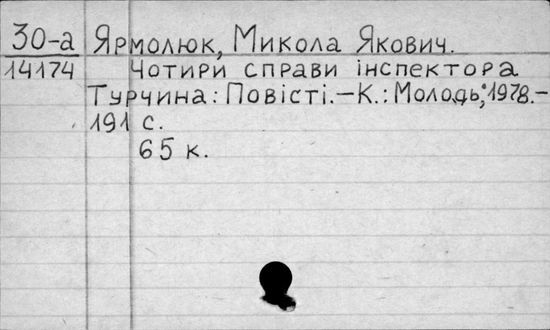 30-а Ярмолюк, Микола Якович.
14174 Чотири справи інспектора
Турчина: Повісті.-К.: Молодь, 1978.-
191 с.
65 к.